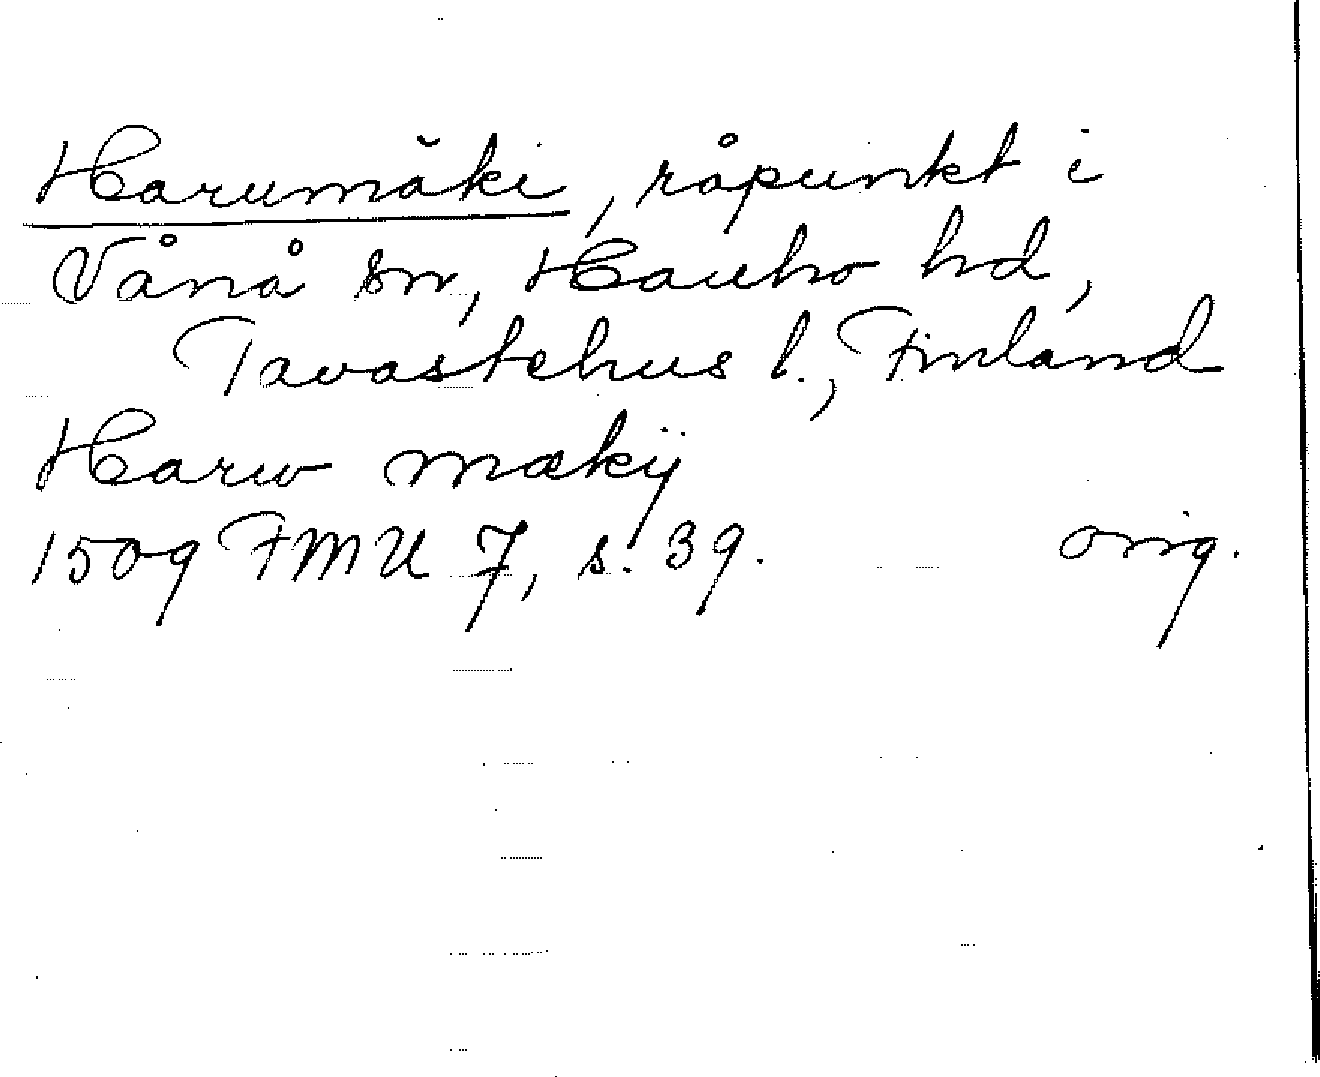 Harumäki, råpunkt i
Vånå sn, Hauho hd,
Tavastehus l., Finland
Harw mækij
1509 FMU 7, s. 39. orig.